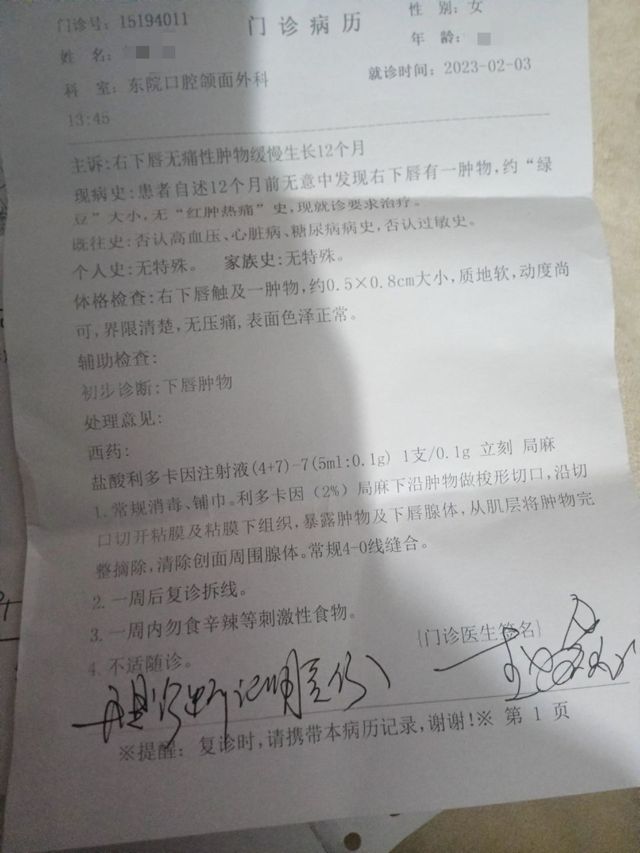 门诊号: 15194011 门诊病历 性 别: 女
姓 名: 年 龄:
科 室: 东院口腔颌面外科 就诊时间: 2023-02-03
13:45
主诉:右下唇无痛性肿物缓慢生长12个月
现病史:患者自述12个月前无意中发现右下唇有一肿物,约“绿
豆”大小,无“红肿热痛”史,现就诊要求治疗。
既往史:否认高血压、心脏病、糖尿病病史,否认过敏史。
个人史:无特殊。 家族史:无特殊。
体格检查:右下唇触及一肿物,约0.5×0.8cm大小,质地软,动度尚
可,界限清楚,无压痛,表面色泽正常。
辅助检查:
初步诊断:下唇肿物
处理意见:
西药:
盐酸利多卡因注射液(4+7)-7(5ml:0.1g) 1支/0.1g 立刻 局麻
1.常规消毒、铺巾。利多卡因（2%）局麻下沿肿物做梭形切口,沿切
口切开粘膜及粘膜下组织,暴露肿物及下唇腺体,从肌层将肿物完
整摘除,清除创面周围腺体。常规4-0线缝合。
2.一周后复诊拆线。
3.一周内勿食辛辣等刺激性食物。
4.不适随诊。
[门诊医生签名]
※提醒: 复诊时,请携带本病历记录,谢谢!※ 第 1 页